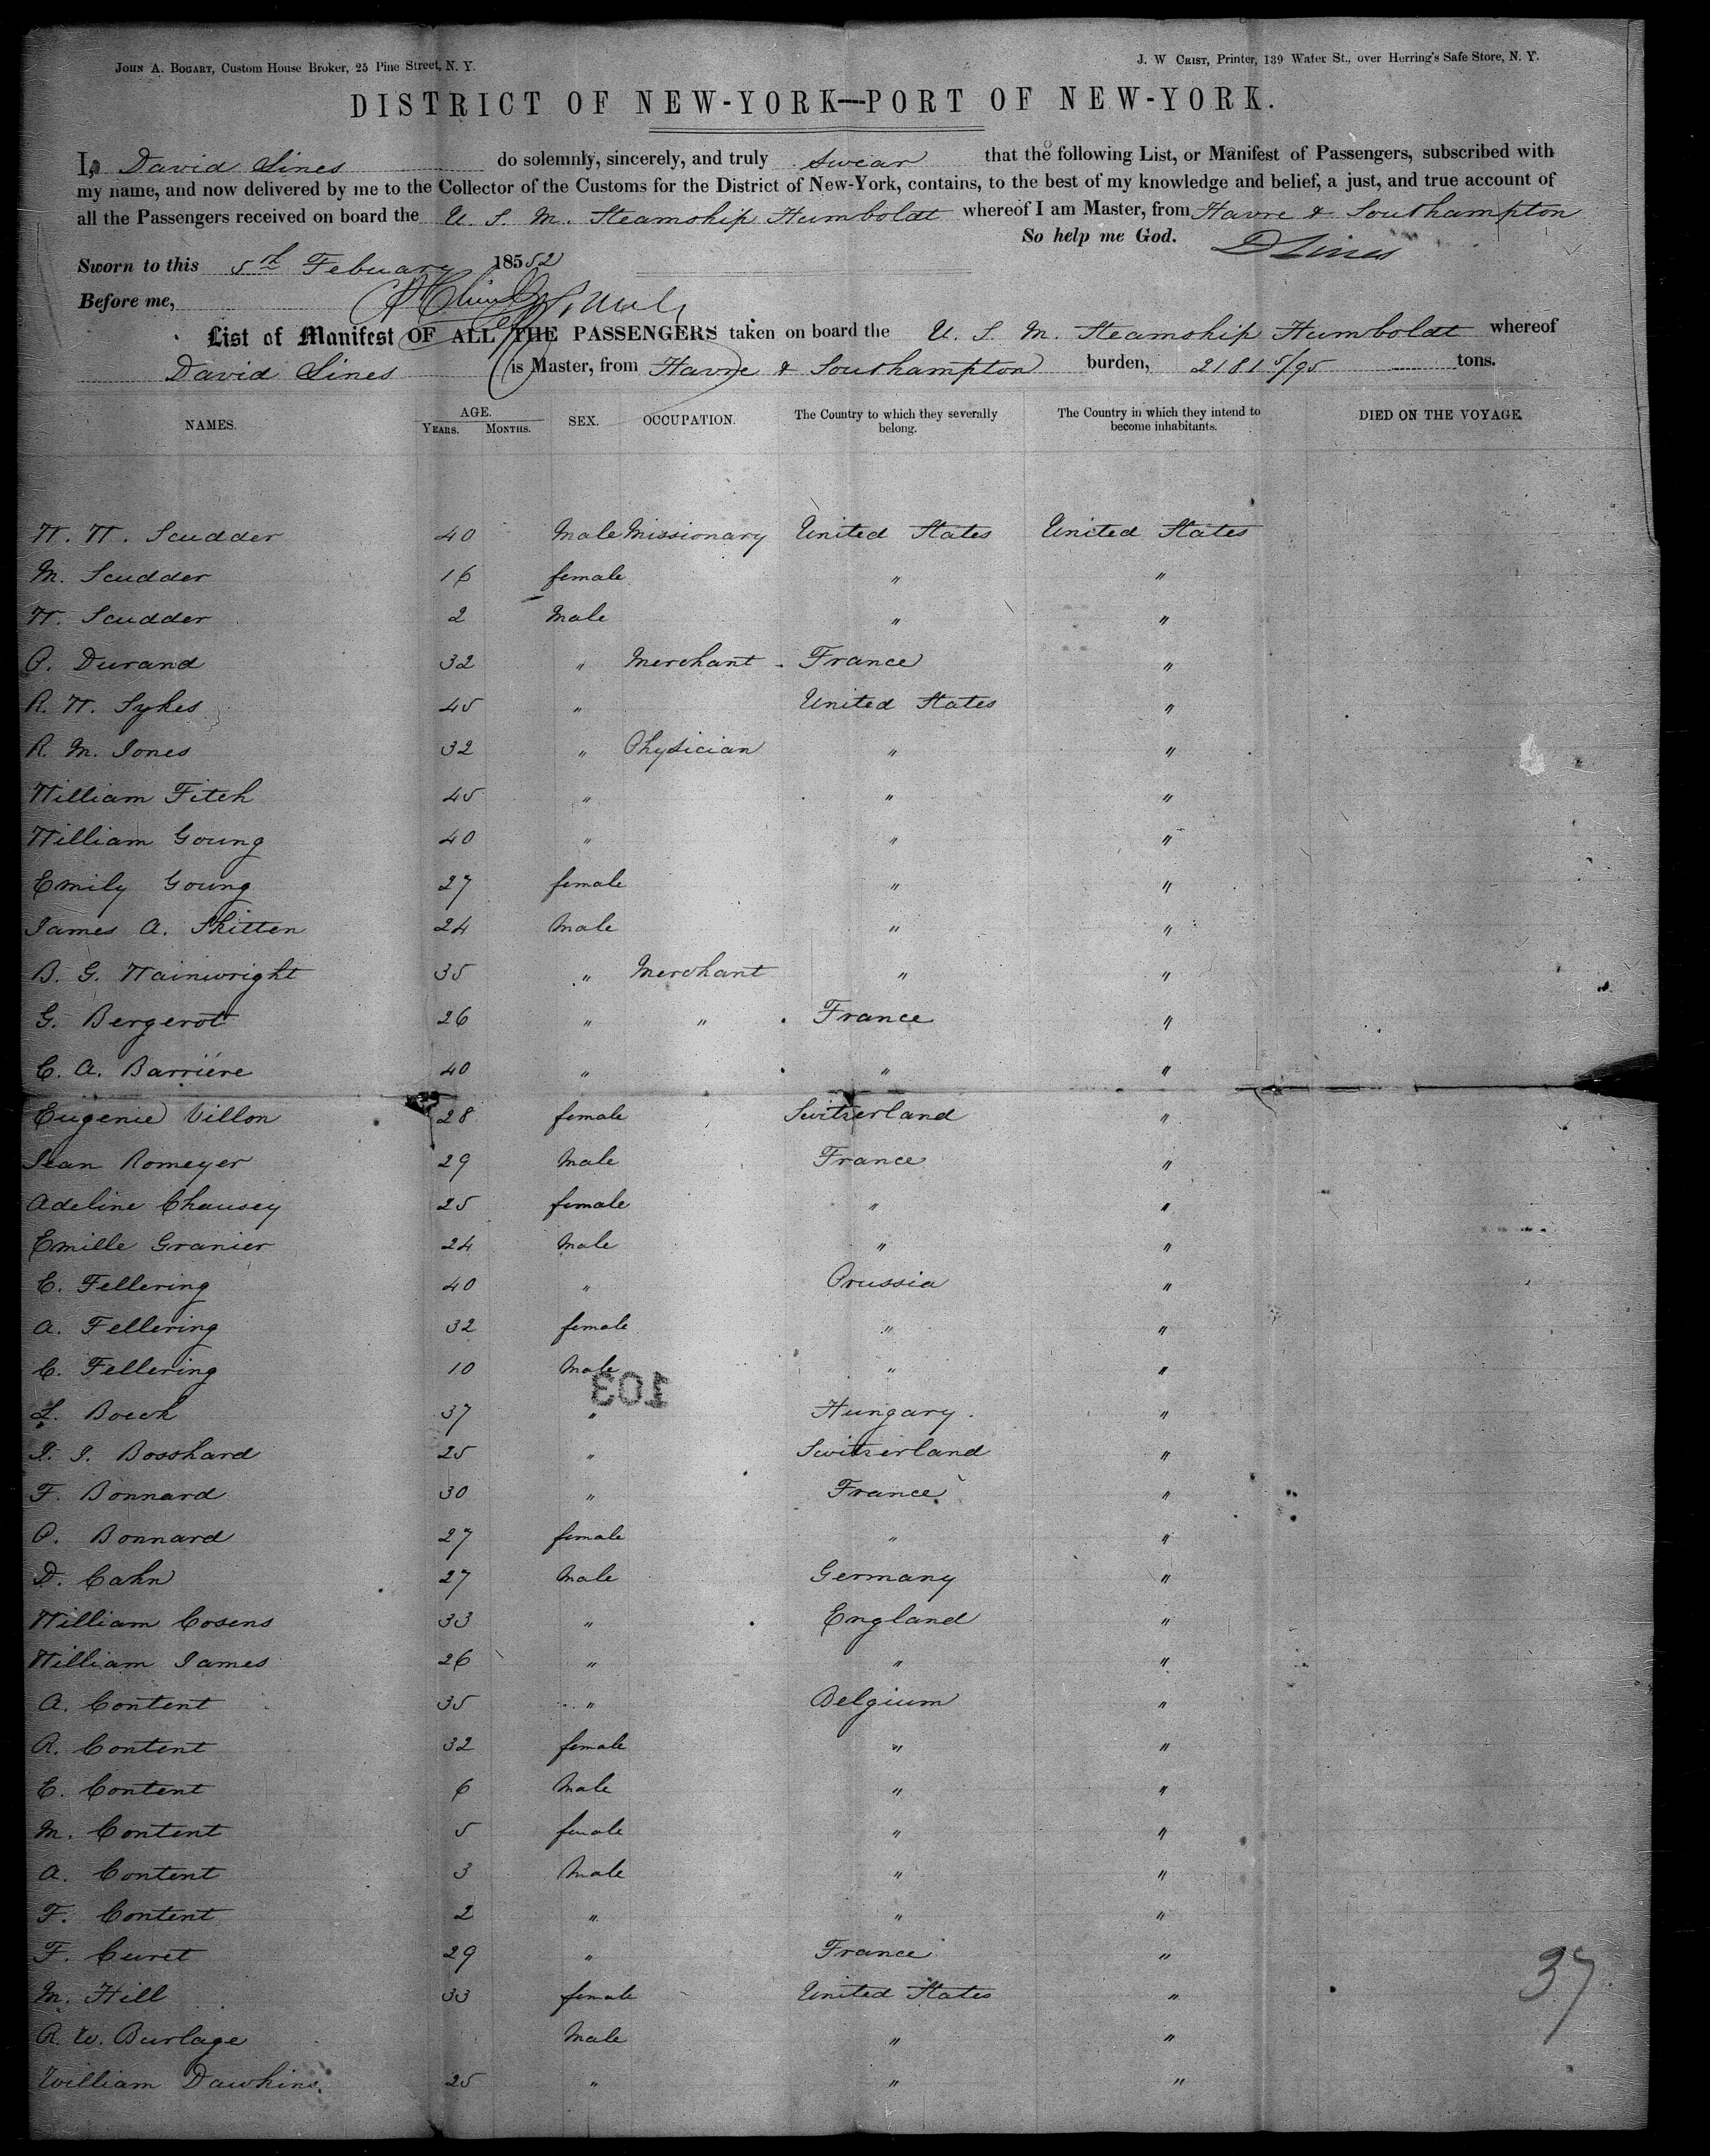 JOHN A. BOGART, Custom House Broker, 25 Pine Street, N. Y.
J. W CRIST, Printer, 139 Water St., over Herring's Safe Store, N. Y.
DISTRICT OF NEW-YORK—PORT OF NEW-YORK.
I, David Lines do solemnly, sincerely, and truly Swear that the following List, or Manifest of Passengers, subscribed with
my name, and now delivered by me to the Collector of the Customs for the District of New-York, contains, to the best of my knowledge and belief, a just, and true account of
all the Passengers received on board the U. S. M. Steamship Humboldt whereof I am Master, from Havre & Southampton
So help me God. D Lines
Sworn to this 5th Febuary 18552
Before me,
List of Manifest OF ALL THE PASSENGERS taken on board the U. S. M. Steamship Humboldt whereof
David Lines is Master, from Havre & Southampton burden, 2181 5/95 tons.
NAMES. AGE. YEARS. MONTHS. SEX. OCCUPATION. The Country to which they severally belong. The Country in which they intend to become inhabitants. DIED ON THE VOYAGE.
W. W. Scudder 40 Male Missionary United States United States
M. Scudder 16 female " "
W. Scudder 2 Male " "
P. Durand 32 " Merchant - France "
R. W. Sykes 45 " United States "
R. M. Jones 32 " Physician " "
William Fitch 45 " " "
William Goung 40 " " "
Emily Goung 27 female " "
James A. Shitten 24 Male " "
B. G. Wainwright 35 " Merchant " "
G. Bergerot 26 " " France "
C. A. Barriére 40 " " "
Eugenie Villon 28 female Switzerland "
Jean Romeyer 29 Male France "
Adeline Chausey 25 female " "
Emille Granier 24 Male " "
E. Fellering 40 " Prussia "
A. Fellering 32 female " "
C. Fellering 10 Male " "
103
L. Boech 37 " Hungary "
J. J. Bosshard 25 " Switzerland "
F. Bonnard 30 " France "
P. Bonnard 27 female " "
D. Cahn 27 Male Germany "
William Cosens 33 " England "
William James 26 " " "
A. Content 35 " Belgium "
R. Content 32 female " "
E. Content 6 Male " "
M. Content 5 female " "
A. Content 3 Male " "
F. Content 2 " " "
F. Curet 29 " France "
M. Hill 33 female United States "
37
R. W. Burlage Male " "
William Dawkins. 25 " " "